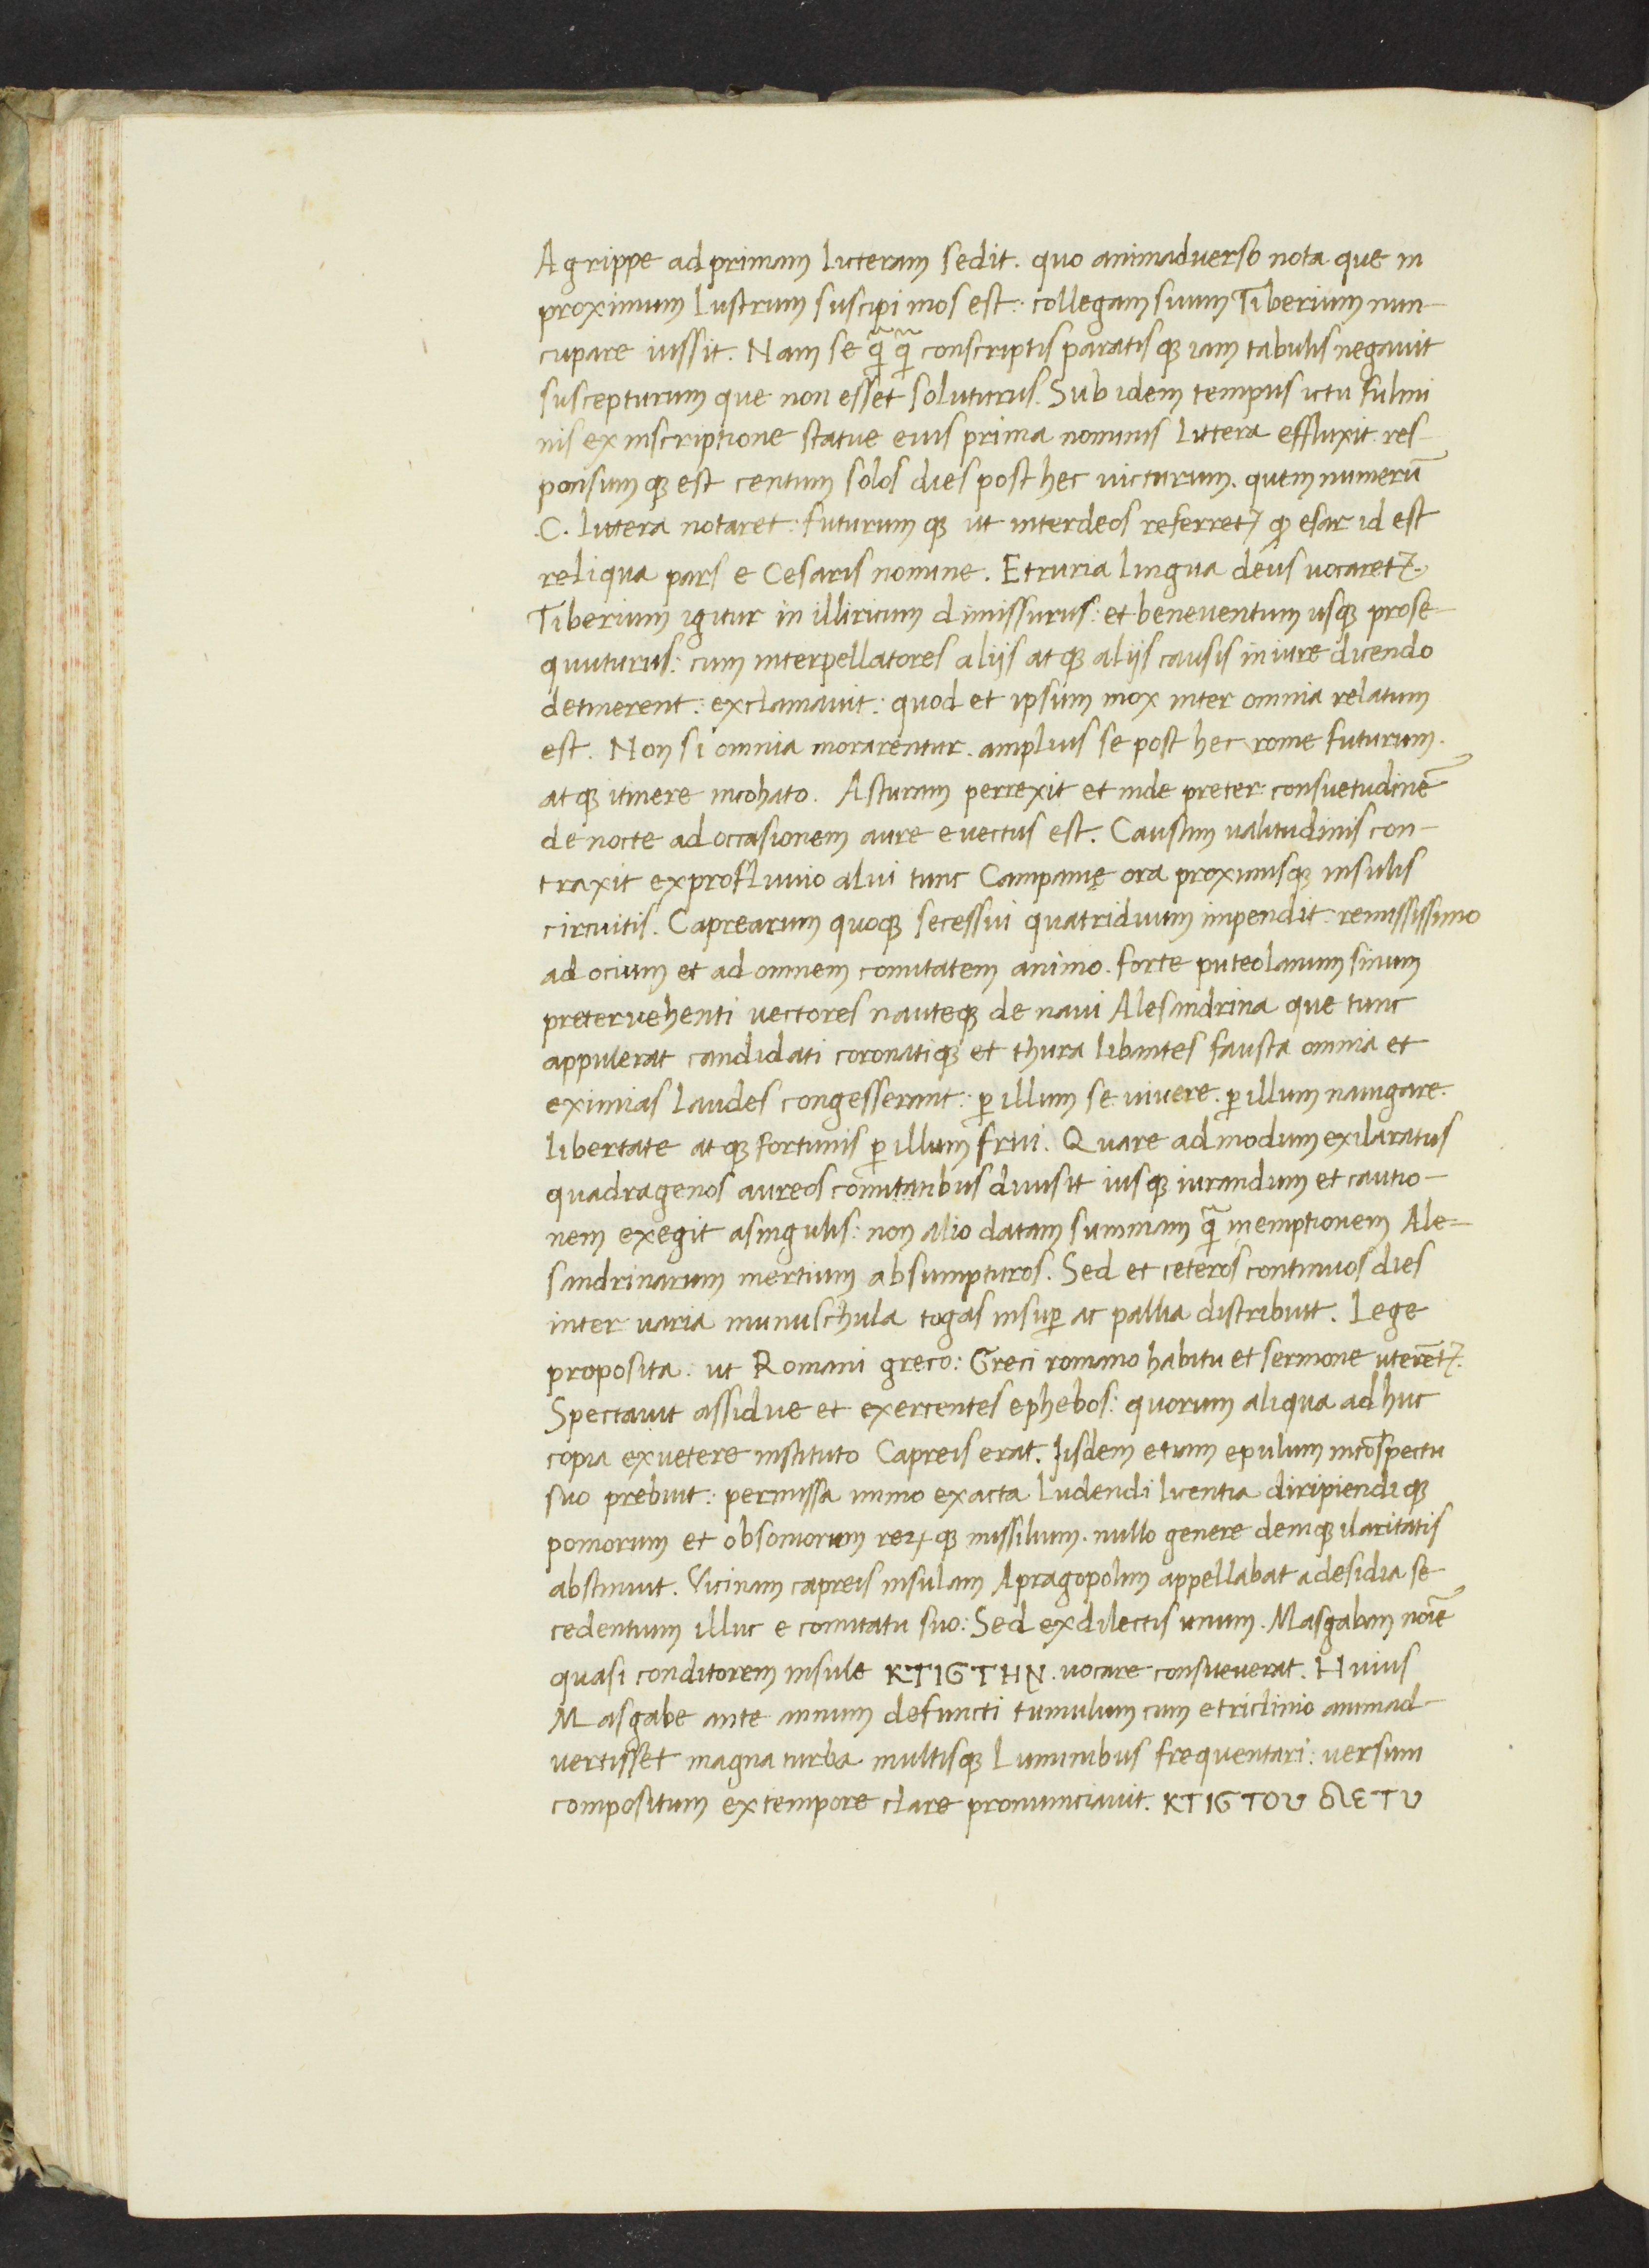 Agrippe ad primam litteram sedit. quo animadverso nota que in
proximum lustrum suscipi mos est: collegam suum Tiberium nun-
cupare iussit. Nam se qᷓ qᷓ conscriptis paratisqꝫ iam tabulis negavit
suscepturum que non esset soluturus. Sub idem tempus ictu fulmi
nis ex inscriptione statue eius prima nominis littera effluxit. res-
ponsumqꝫ est centum solos dies post hec victurum. quem numerū
.C. littera notaret: futurumqꝫ ut inter deos referretꝛ ꝙ esar id est
reliqua pars e Cesaris nomine. Etruria lingua deus vocaretꝛ.
Tiberium igitur in illiricum dimissurus: et beneventum usqꝫ prose-
quuturus: cum interpellatores aliis atqꝫ aliis causis in iure dicendo
detinerent: exclamavit: quod et ipsum mox inter omnia relatum
est. Non si omnia morarentur. amplius se post hec rome futurum.
atqꝫ itinere incohato. Asturam perrexit et inde preter consuetudinē
de nocte ad occasionem aure evectus est. Causam valitudinis con-
traxit ex profluvio alvi tunc Campanię ora proximisqꝫ insulis
circuitis. Caprearum quoqꝫ secessui quatriduum impendit: remississimo
ad ocium et ad omnem comitatem animo. forte puteolanum sinum
pretervehenti vectores nauteqꝫ de navi Alesandrina que tunc
appulerat candidati coronatiqꝫ et thura libantes fausta omnia et
eximias laudes congesserant: ꝑ illum se vivere. ꝑ illum navigare.
libertate atqꝫ fortunis ꝑ illum frui. Quare admodum exilaratus
quadragenos aureos comitatibus divisit iusqꝫ iurandum et cautio-
nem exegit a singulis: non alio datam summam qᷓ in emptionem Ale=
sandrinarum mertium absumpturos. Sed et ceteros continuos dies
inter varia munuschula togas insuꝑ ac pallia distribuit. Lege
proposita: ut Romani greco: Greci romano habitu et sermone uterēntꝛ.
Spectavit assidue et exercentes ephebos: quorum aliqua adhuc
copia ex vetere instituto Capreis erat. Iisdem etiam epulum in cōspectu
suo prebuit: permissa immo exacta ludendi licentia diripiendiqꝫ
pomorum et obsoniorum reꝝqꝫ missilium. nullo genere deniqꝫ ilaritatis
abstinuit. Vicinam capreis insulam Apragopolim appellabat a desidia se
cedentium illuc e comitatu suo: Sed ex dilectis unum. Masgabam noīe
quasi conditorem insule ΚΤΙϹΤΗΝ. vocare consueverat. Huius
Masgabe ante annum defuncti tumulum cum e triclinio animad-
vertisset magna turba multisqꝫ luminibus frequentari: versum
compositum ex tempore clare pronunciavit. ΚΤΙϹΤΟΥ ΔΕ ΤΥ